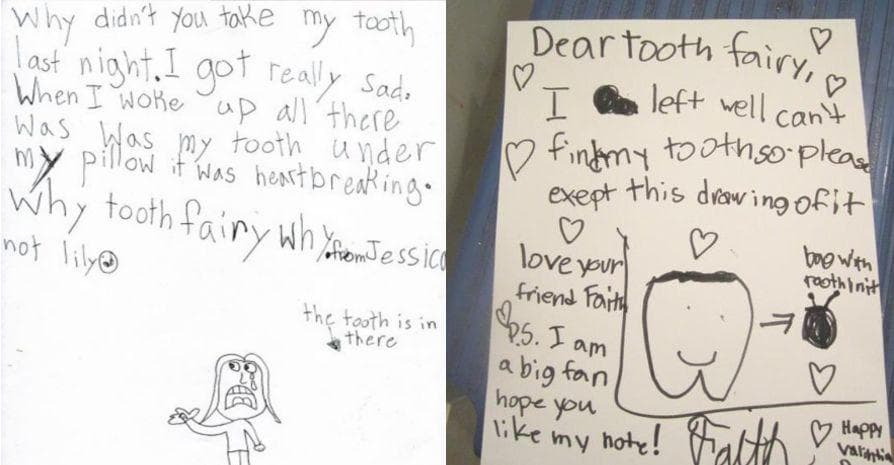 Why didn't you take my tooth
last night. I got really sad.
When I woke up all there
was was my tooth under
my pillow it was heartbreaking.
Why tooth fairy why. from Jessica
not lily
the tooth is in
there
Dear tooth fairy,
I left well can't
find my tooth so please
exept this drawing of it
love your
friend Faith
P.S. I am
a big fan
hope you
like my note!
bag with
tooth in it
Faith
Happy